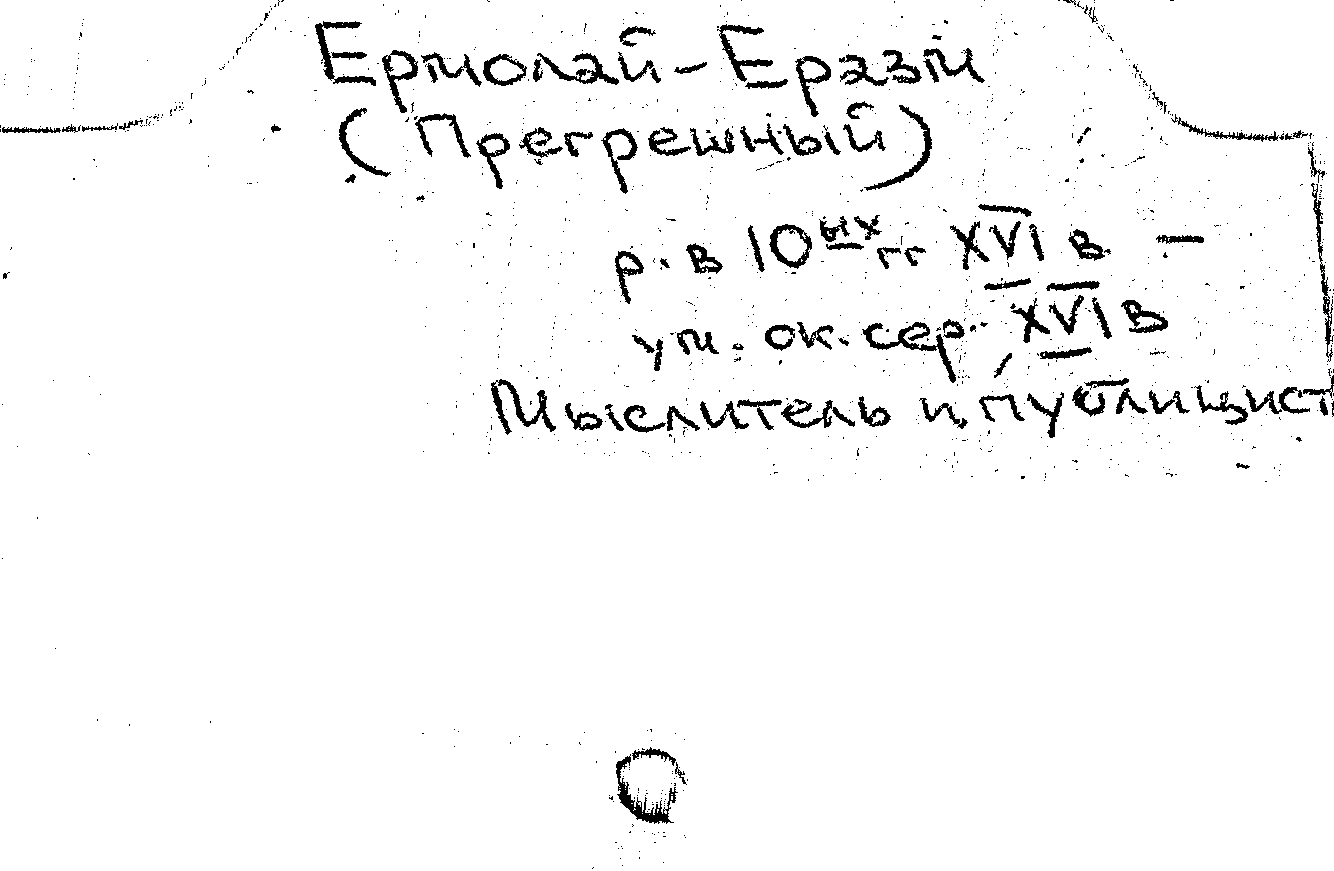 Ермолай-Еразм
(Прегрешный)
р. в 10ых гг XVI в. –
ум. ок. сер. XVI в
Мыслитель и публицист